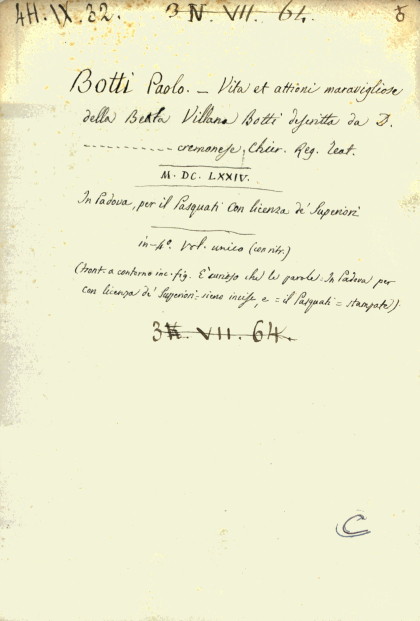 4H. IX. 32. 3 N. VII. 64. 5
Botti Paolo. _ Vita et attioni maravigliose
della Beata Villana Botti descritta da D.
- - - - - - - - - - - cremonese, Chier. Reg. Teat.
M. DC. LXXIV.
In Padova, per il Pasquati Con licenza de' Superiori
in-4º. Vol. unico (con ritr.)
(front. a contorno inc. fig. E' curioso che le parole: In Padova per
con licenza de' Superiori = sieno incise, e = il Pasquati = stampate).
VII. 64.
C